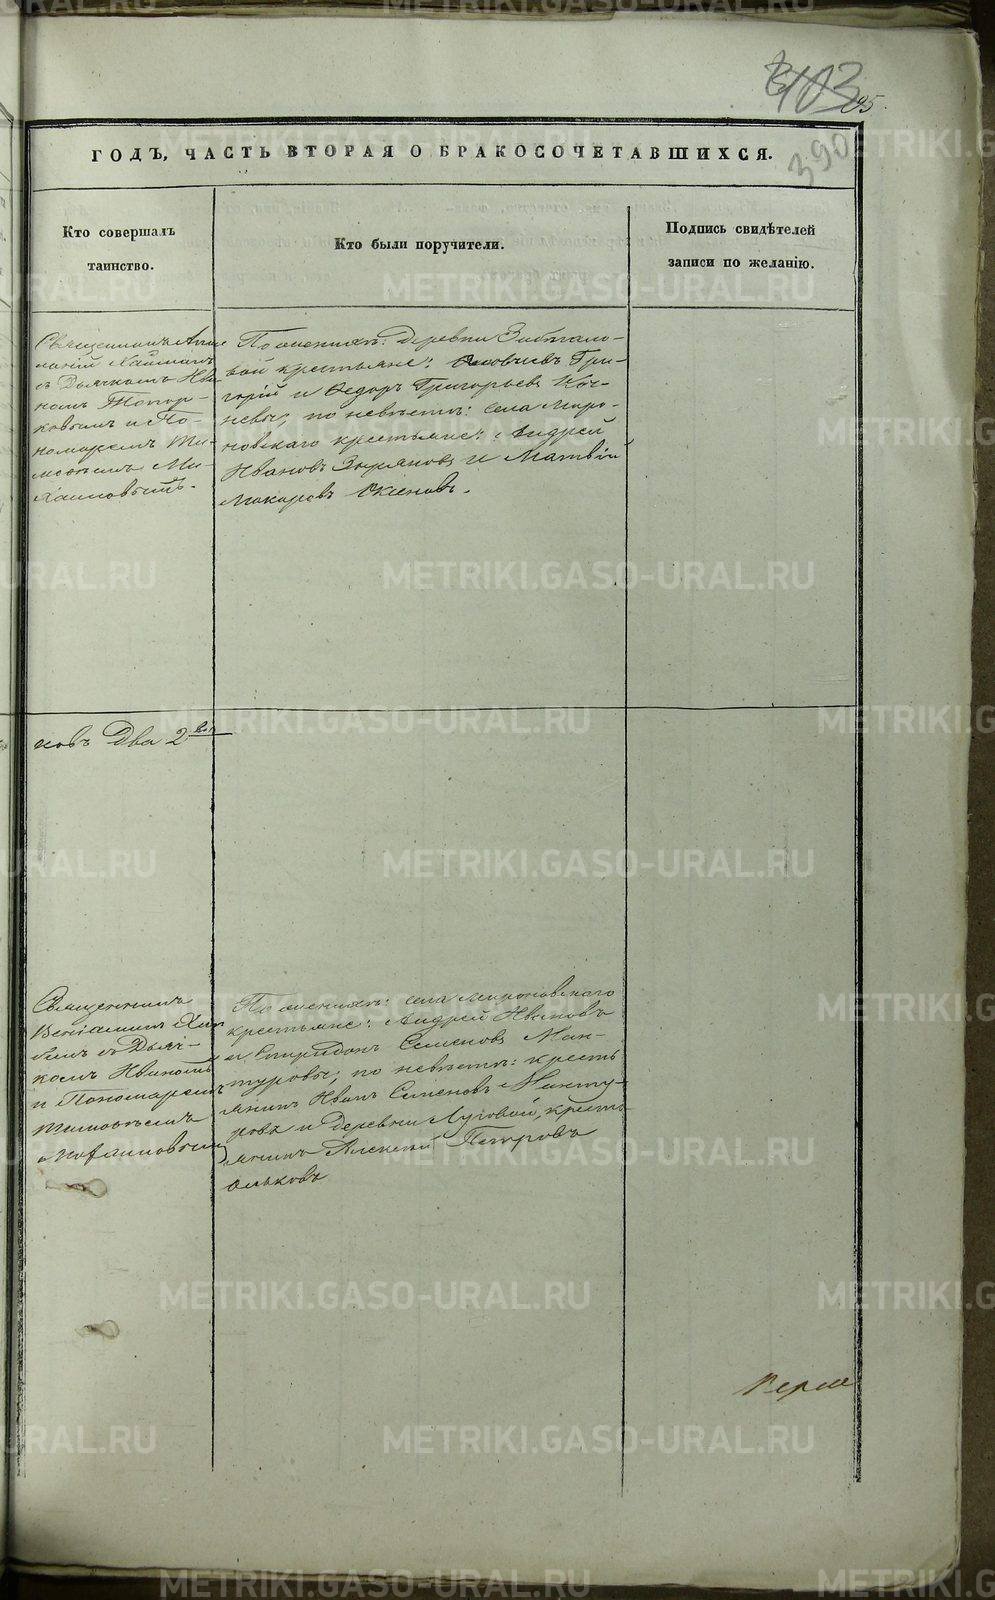 103
95.
390
ГОДЪ, ЧАСТЬ ВТОРАЯ О БРАКОСОЧЕТАВШИХСЯ.
Кто совершалъ
таинство.
Кто были поручители.
Подпись свидѣтелей
записи по желанію.
Священникъ
съ Дьячкомъ Ива
номъ Топор-
ковымъ и По-
номаремъ Ти-
мофеемъ Ми-
хайловымъ.
По женихѣ: деревни
вой крестьяне: Гри-
горій и Ѳедоръ Григорьевы Коч-
невы; по невѣстѣ: села Миро-
новскаго крестьяне: Андрей
Ивановъ Зыряновъ и Матвѣй
Макаровъ
ковъ Два 2
Священникъ
Веніаминъ
съ Дьяч-
комъ Иваномъ
и Пономаремъ
Тимофеемъ
По женихѣ: села Мироновскаго
крестьяне: Андрей Ивановъ
и Спиридонъ Семеновъ Ман-
туровы; по невѣстѣ: кресть
янинъ Иванъ Семеновъ Манту-
ровъ и деревни Луговой, кресть
янинъ Алексѣй Петровъ
METRIKI.GASO-URAL.RU